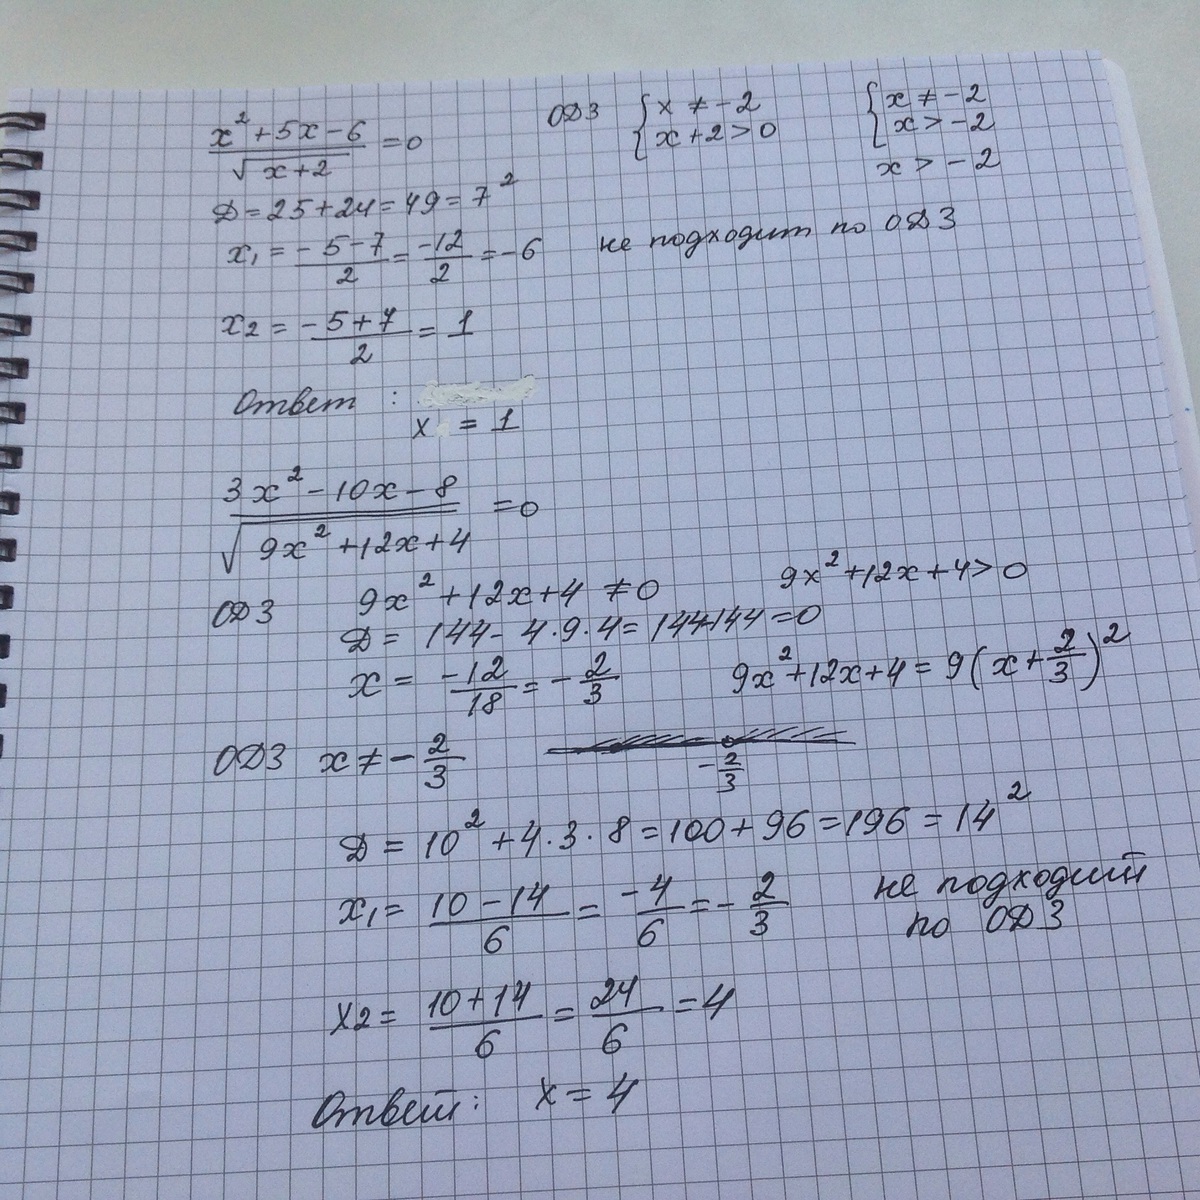 (x² + 5x - 6)/√(x+2) = 0 ОДЗ { x ≠ -2 { x ≠ -2
{ x + 2 > 0 { x > -2
x > -2
Д = 25 + 24 = 49 = 7²
x₁ = (-5-7)/2 = -12/2 = -6 не подходит по ОДЗ
x₂ = (-5+7)/2 = 1
Ответ :
x = 1
(3x² - 10x - 8)/√(9x² + 12x + 4) = 0
ОДЗ 9x² + 12x + 4 ≠ 0 9x² + 12x + 4 > 0
Д = 144 - 4·9·4 = 144-144 = 0
x = -12/18 = -2/3 9x² + 12x + 4 = 9(x + 2/3)²
ОДЗ x ≠ -2/3
-2/3
Д = 10² + 4·3·8 = 100 + 96 = 196 = 14²
x₁ = (10-14)/6 = -4/6 = -2/3 не подходит
по ОДЗ
x₂ = (10+14)/6 = 24/6 = 4
Ответ: x = 4